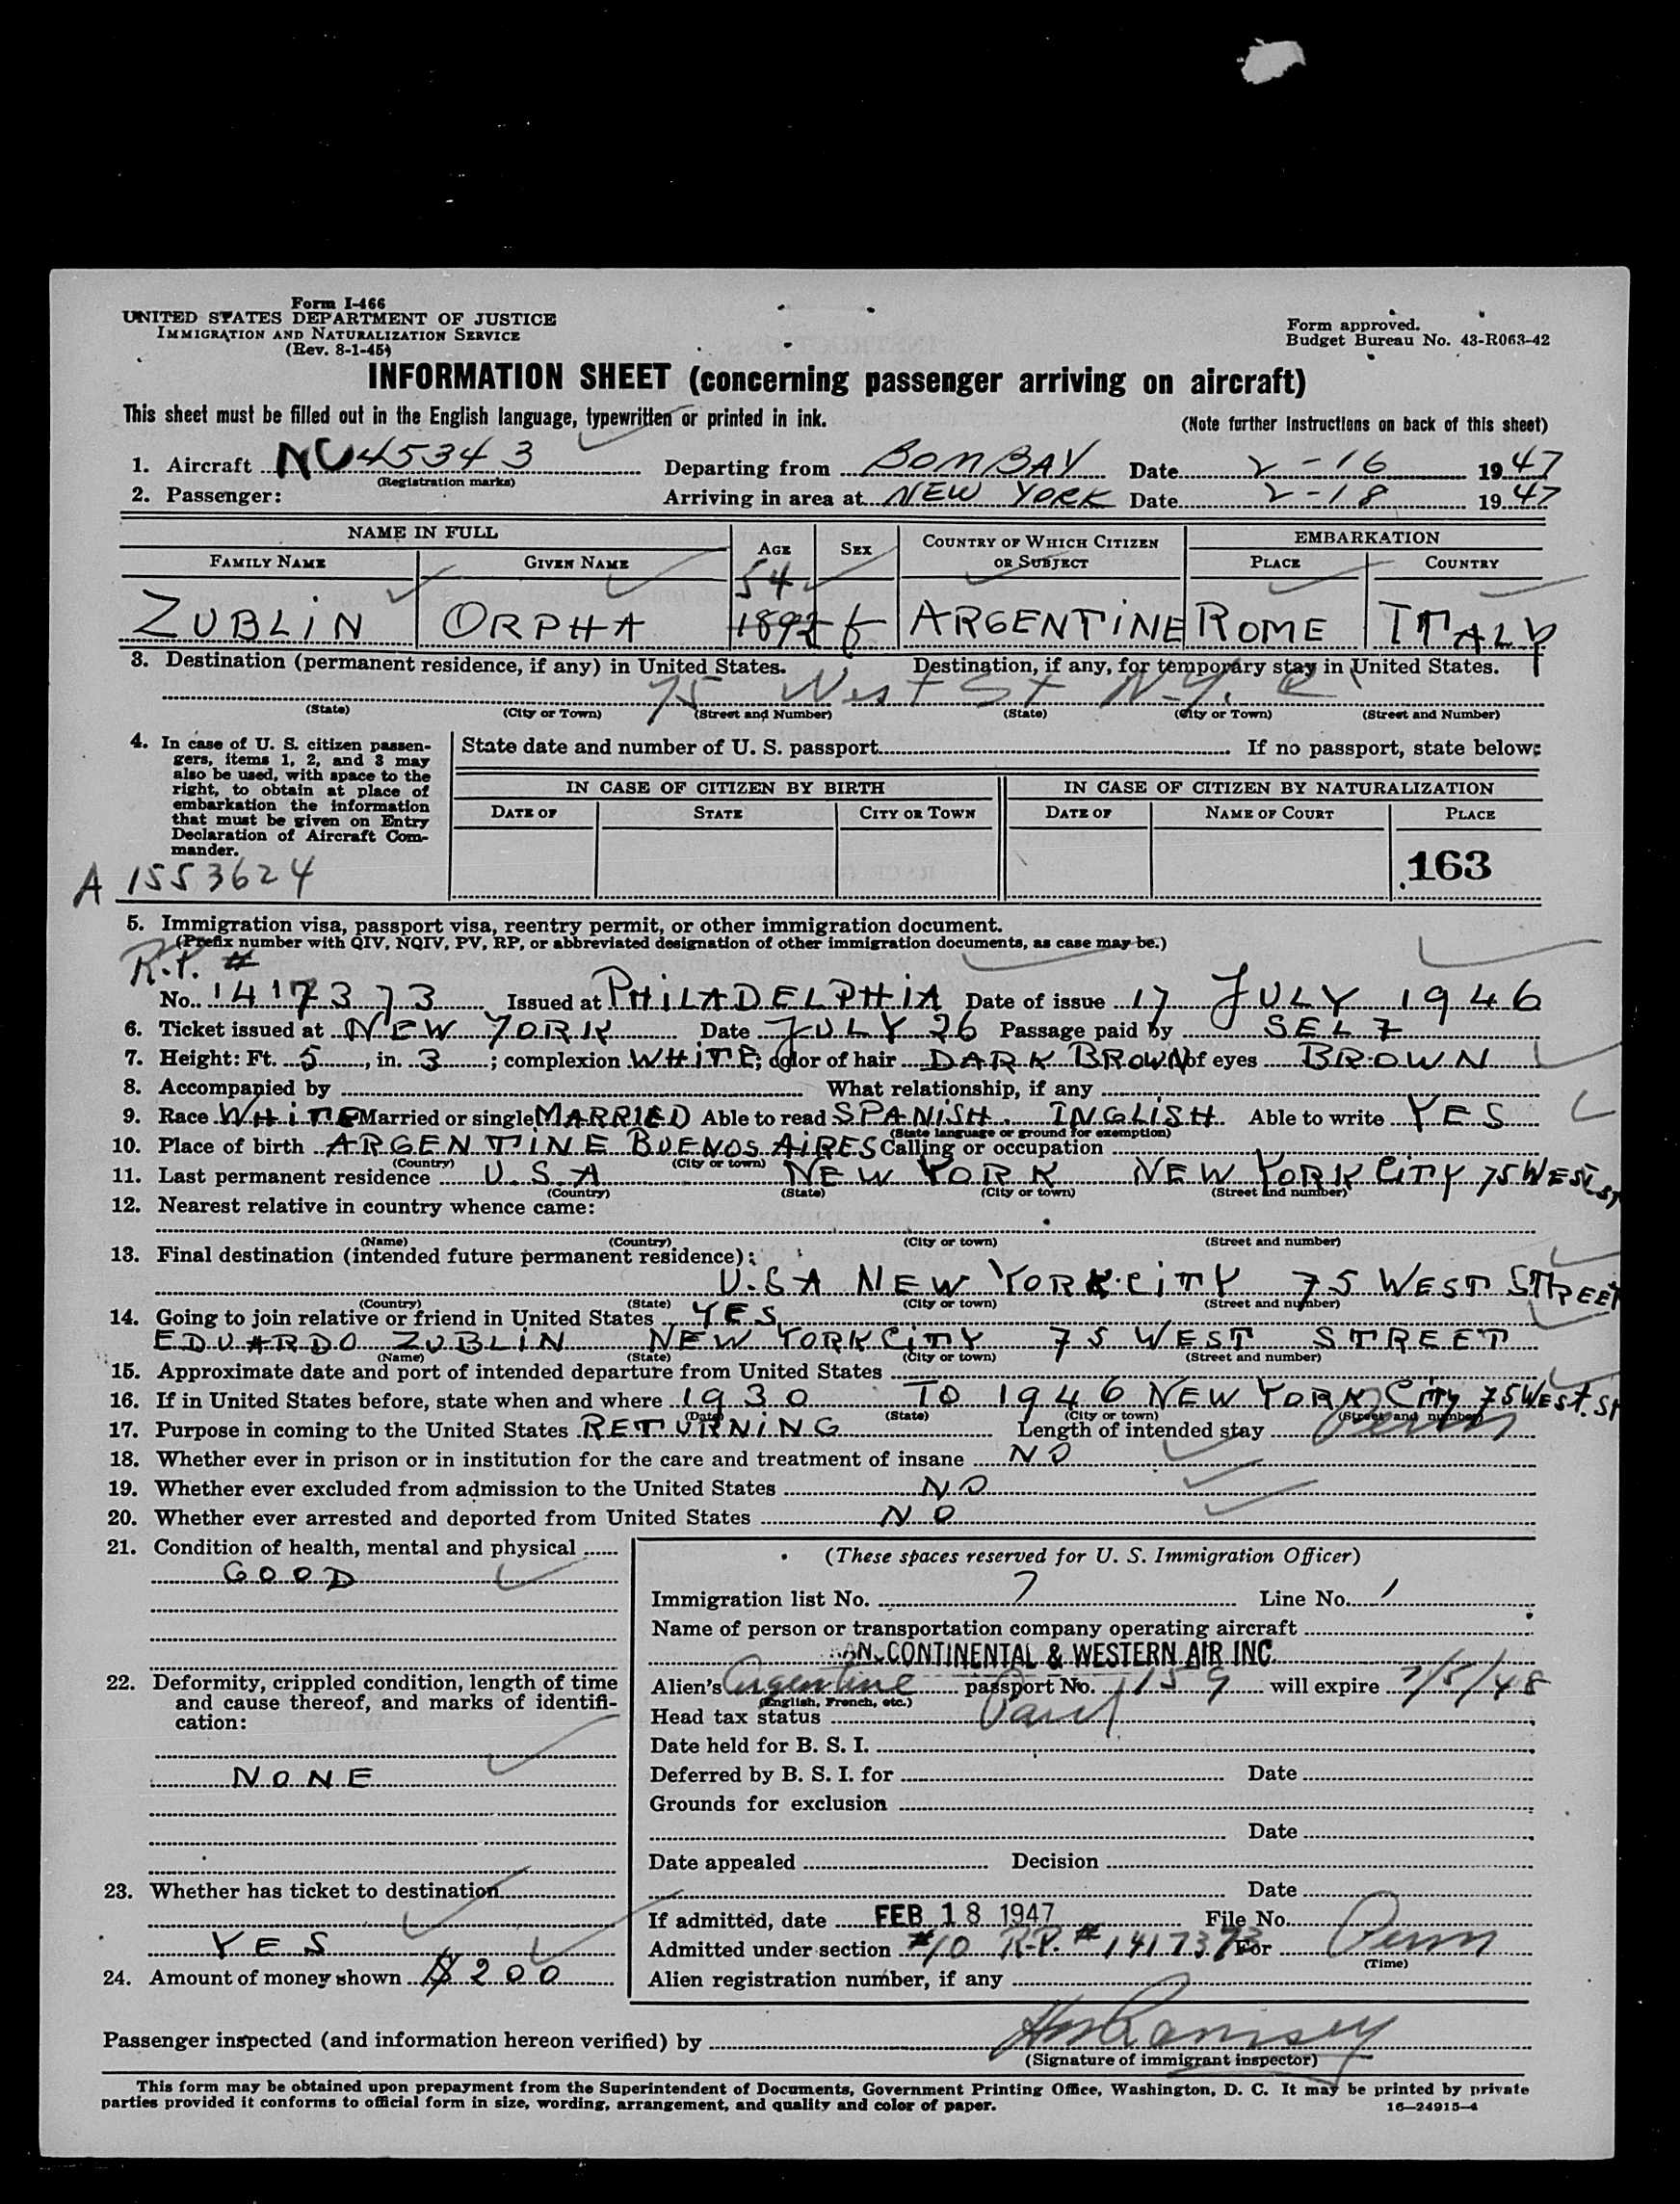 Form I-466
UNITED STATES DEPARTMENT OF JUSTICE
IMMIGRATION AND NATURALIZATION SERVICE
(Rev. 8-1-45)
Form approved.
Budget Bureau No. 43-R063-42
INFORMATION SHEET (concerning passenger arriving on aircraft)
This sheet must be filled out in the English language, typewritten or printed in ink.
(Note further instructions on back of this sheet)
1. Aircraft NC 45343 Departing from BOMBAY Date 2-16 1947
(Registration marks)
2. Passenger: Arriving in area at NEW YORK Date 2-18 1947
NAME IN FULL AGE SEX COUNTRY OF WHICH CITIZEN OR SUBJECT EMBARKATION
FAMILY NAME GIVEN NAME PLACE COUNTRY
54
ZUBLIN ORPHA 1892 f ARGENTINE ROME ITALY
3. Destination (permanent residence, if any) in United States. Destination, if any, for temporary stay in United States.
75 West St N.Y.
(State) (City or Town) (Street and Number) (State) (City or Town) (Street and Number)
4. In case of U. S. citizen passen-
gers, items 1, 2, and 3 may
also be used, with space to the
right, to obtain at place of
embarkation the information
that must be given on Entry
Declaration of Aircraft Com-
mander.
State date and number of U. S. passport If no passport, state below:
IN CASE OF CITIZEN BY BIRTH IN CASE OF CITIZEN BY NATURALIZATION
DATE OF STATE CITY OR TOWN DATE OF NAME OF COURT PLACE
163
A 1553624
5. Immigration visa, passport visa, reentry permit, or other immigration document.
(Prefix number with QIV, NQIV, PV, RP, or abbreviated designation of other immigration documents, as case may be.)
R.P. #
No. 1417373 Issued at PHILADELPHIA Date of issue 17 JULY 1946
6. Ticket issued at NEW YORK Date JULY 26 Passage paid by SELF
7. Height: Ft. 5, in. 3; complexion WHITE; color of hair DARK BROWN of eyes BROWN
8. Accompanied by What relationship, if any
9. Race WHITE Married or single MARRIED Able to read SPANISH. INGLISH Able to write YES
(State language or ground for exemption)
10. Place of birth ARGENTINE BUENOS AIRES Calling or occupation
(Country) (City or town)
11. Last permanent residence U.S.A NEW YORK NEW YORK CITY 75 WEST ST
(Country) (State) (City or town) (Street and number)
12. Nearest relative in country whence came:
(Name) (Country) (City or town) (Street and number)
13. Final destination (intended future permanent residence):
U.S A NEW YORK CITY 75 WEST STREET
(Country) (State) (City or town) (Street and number)
14. Going to join relative or friend in United States YES
EDUARDO ZUBLIN NEW YORK CITY 75 WEST STREET
(Name) (State) (City or town) (Street and number)
15. Approximate date and port of intended departure from United States
16. If in United States before, state when and where 1930 TO 1946 NEW YORK City 75 WEST. ST
(Date) (State) (City or town) (Street and number)
17. Purpose in coming to the United States RETURNING Length of intended stay Perm
18. Whether ever in prison or in institution for the care and treatment of insane NO
19. Whether ever excluded from admission to the United States NO
20. Whether ever arrested and deported from United States NO
21. Condition of health, mental and physical
GOOD
22. Deformity, crippled condition, length of time
and cause thereof, and marks of identifi-
cation:
NONE
23. Whether has ticket to destination
YES
24. Amount of money shown $200
(These spaces reserved for U. S. Immigration Officer)
Immigration list No. 7 Line No. 1
Name of person or transportation company operating aircraft
AN. CONTINENTAL & WESTERN AIR INC.
Alien's Argentine passport No. 159 will expire 7/5/48
(English, French, etc.)
Head tax status Paid
Date held for B. S. I.
Deferred by B. S. I. for Date
Grounds for exclusion
Date
Date appealed Decision
Date
If admitted, date FEB 18 1947 File No.
Admitted under section #10 R.P. #1417373 For Perm
(Time)
Alien registration number, if any
Passenger inspected (and information hereon verified) by Ramsey
(Signature of immigrant inspector)
This form may be obtained upon prepayment from the Superintendent of Documents, Government Printing Office, Washington, D. C. It may be printed by private
parties provided it conforms to official form in size, wording, arrangement, and quality and color of paper.
16—24915-4